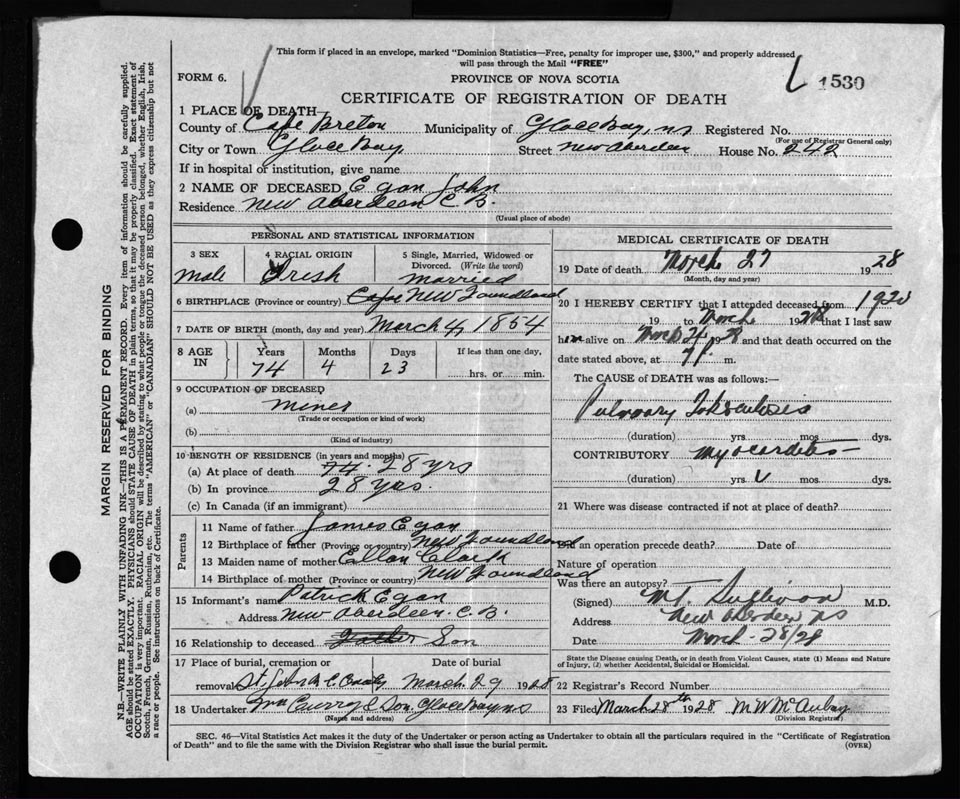 This form if placed in an envelope, marked "Dominion Statistics—Free, penalty for improper use, $300," and properly addressed
will pass through the Mail "FREE"
FORM 6.
PROVINCE OF NOVA SCOTIA
1530
CERTIFICATE OF REGISTRATION OF DEATH
1 PLACE OF DEATH—
County of Cape Breton Municipality of Glace Bay, NS Registered No.
(For use of Registrar General only)
City or Town Glace Bay. Street New Aberdeen House No. 242
If in hospital of institution, give name
2 NAME OF DECEASED Egan John
Residence New Aberdeen C.B.
(Usual place of abode)
PERSONAL AND STATISTICAL INFORMATION
3 SEX
male
4 RACIAL ORIGIN
Irish
5 Single, Married, Widowed or
Divorced. (Write the word)
married
6 BIRTHPLACE (Province or country) Cape New Foundland
7 DATE OF BIRTH (month, day and year) March 4, 1854
8 AGE IN
Years Months Days If less than one day,
74 4 23 hrs. or min.
9 OCCUPATION OF DECEASED
(a) miner
(Trade or occupation or kind of work)
(b)
(Kind of industry)
10 LENGTH OF RESIDENCE (in years and months)
(a) At place of death 74. 28 yrs
(b) In province 28 yrs.
(c) In Canada (if an immigrant)
Parents
11 Name of father James Egan
12 Birthplace of father (Province or country) New Foundland
13 Maiden name of mother Ellan Clark
14 Birthplace of mother (Province or country) New Foundland
15 Informant's name Patrick Egan
Address New Aberdeen. C.B.
16 Relationship to deceased Father Son
17 Place of burial, cremation or Date of burial
removal St. March 29 1928
18 Undertaker Curry & Son Glace Bay NS
(Name and address)
MEDICAL CERTIFICATE OF DEATH
19 Date of death March 27 1928
(Month, day and year)
20 I HEREBY CERTIFY that I attended deceased from 1920
19 to March 1928 that I last saw
him alive on March 1928 and that death occurred on the
date stated above, at m.
The CAUSE of DEATH was as follows:—
Pulmonary Tuberculosis
(duration) yrs mos dys.
CONTRIBUTORY myocarditis
(duration) yrs mos dys.
21 Where was disease contracted if not at place of death?
Did an operation precede death? Date of
Nature of operation
Was there an autopsy?
(Signed) M.T. Sullivan M.D.
Address New Aberdeen NS
Date March - 28/28
State the Disease causing Death, or in death from Violent Causes, state (1) Means and Nature
of Injury, (2) whether Accidental, Suicidal or Homicidal.
22 Registrar's Record Number
23 Filed March 28th 1928 M W McAulay
(Division Registrar)
SEC. 46—Vital Statistics Act makes it the duty of the Undertaker or person acting as Undertaker to obtain all the particulars required in the "Certificate of Registration
of Death" and to file the same with the Division Registrar who shall issue the burial permit. (OVER)
MARGIN RESERVED FOR BINDING
N.B.—WRITE PLAINLY WITH UNFADING INK—THIS IS A PERMANENT RECORD. Every item of information should be carefully supplied.
AGE should be stated EXACTLY. PHYSICIANS should STATE CAUSE OF DEATH in plain terms, so that it may be properly classified. Exact statement of
OCCUPATION is very important. RACIAL ORIGIN will be described by stating to what people or tongue the deceased person belonged, whether English, Irish,
Scotch, French, German, Russian, Ruthenian, etc. The terms "AMERICAN" or "CANADIAN" SHOULD NOT BE USED as they express citizenship but not
a race or people. See instructions on back of Certificate.